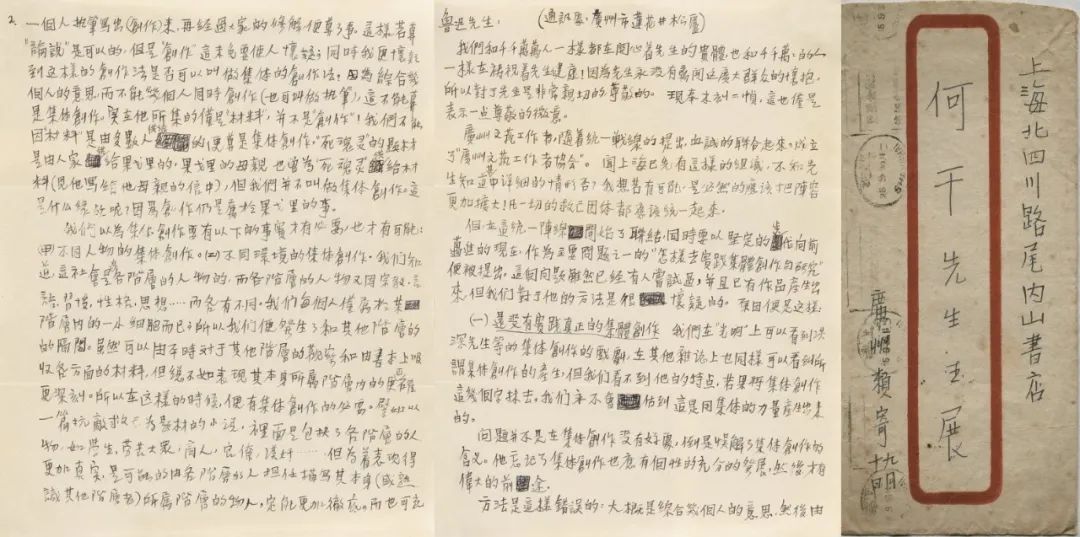 上海北四川路尾内山書店
何干先生 玉展
廣州 類寄
魯迅先生：（通訊處，廣州市蓮花井松廬）
我們和千千萬萬人一樣都在関心着先生的貴體也和千千萬萬的人
一樣在禱祝着先生健康！因為先生永沒有离開过廣大群众的懷抱，
所以對于先生是非常親切的尊敬的。現在未刻二頓，這也僅是
表示一点尊敬的微意。
廣州文藝工作者，隨着統一戰線的提出，血誠的聯合起來。成立
了"廣州文藝工作者協会"。聞上海已先有這樣的組議，不知先
生知道其中詳細的情形否？我想若有可能，是必然的應該把陣容
更加擴大！凡一切的救亡团体都應該統一起來。
但在這統一陣線開始了聯結，同時要以堅定的步伐向前
邁進的現在，作為主要問題之一的"怎樣去實踐集體創作和研究"
便被提出。這個问题雖然已經有人嘗試過，並且已有作品產生出
來，但我們對于他的方法是很懷疑的。理由便是這樣：
（一）還没有實踐真正的集體創作 我們在"光明"上可以看到洪
深先生等的集体創作的戲劇，在其他雜誌上也同樣可以看到所
謂集体創作的產生，但我們看不到他的特点，若果将集体創作
這幾個字抹去，我們永不會估到這是用集体的力量產生出來
的。
问题並不是在集体創作沒有好處，倒是悮解了集体創作的
含义。他忘记了集体創作也應有個性的充分的發展，然後才有
偉大的前途。
方法是這樣錯誤的：大概是綜合幾個人的意思，然後由
2.
一個人执筆寫出（創作）來，再經過大家的修解，便算了事。這樣，若果
"論說"是可以的，但是"創作"這未免要使人懷疑；同時我更懷疑
到这樣的創作法是否可以叫做集体的創作法！因為綜合幾
個人的意思，而不能幾個人同時創作（也可叫做执筆），這不能算
是集体創作。實在他所集的僅是"材料"，并不是"創作"！我們不能
因材料是由多數人供給的便算是集体創作。"死魂灵"的題材
是由人家供給果戈里的，果戈里的母親也曾為"死魂灵"供給材
料（見他寫給他母親的信中），但我們并不叫做集体創作。這
是什么緣故呢？因為創作仍是屬於果戈里的事。
我們以為集体創作要有以下的事實才有必要，也才有可能：
（甲）不同人物的集体創作。（乙）不同環境的集体創作。我們知
道，這社會是各階層的人物的，而各階層的人物又因宗教、言
語，習慣，性格，思想……而各有不同。我們每個人僅屬於某
階層内的一小細胞而已；所以我們便發生了和其他階層的
的隔阂。虽然可以由平時对于其他階層的觀察和由書本上吸
收各方面的材料，但總不如表現其本身所屬階層内的更正確
更深刻。所以在这樣的時候，便有集体創作的必需。譬如以
一篇抗敵救亡為題材的小說，裡面是包括了各階層的人
物，如學生，劳苦大眾，商人，官僚，漢奸……，但為着表現得
更加真實，是可能的由各階層的人担任描写其本身（或熟
識其他階層者）所屬階層的人物，定能更加徹底。而也可充